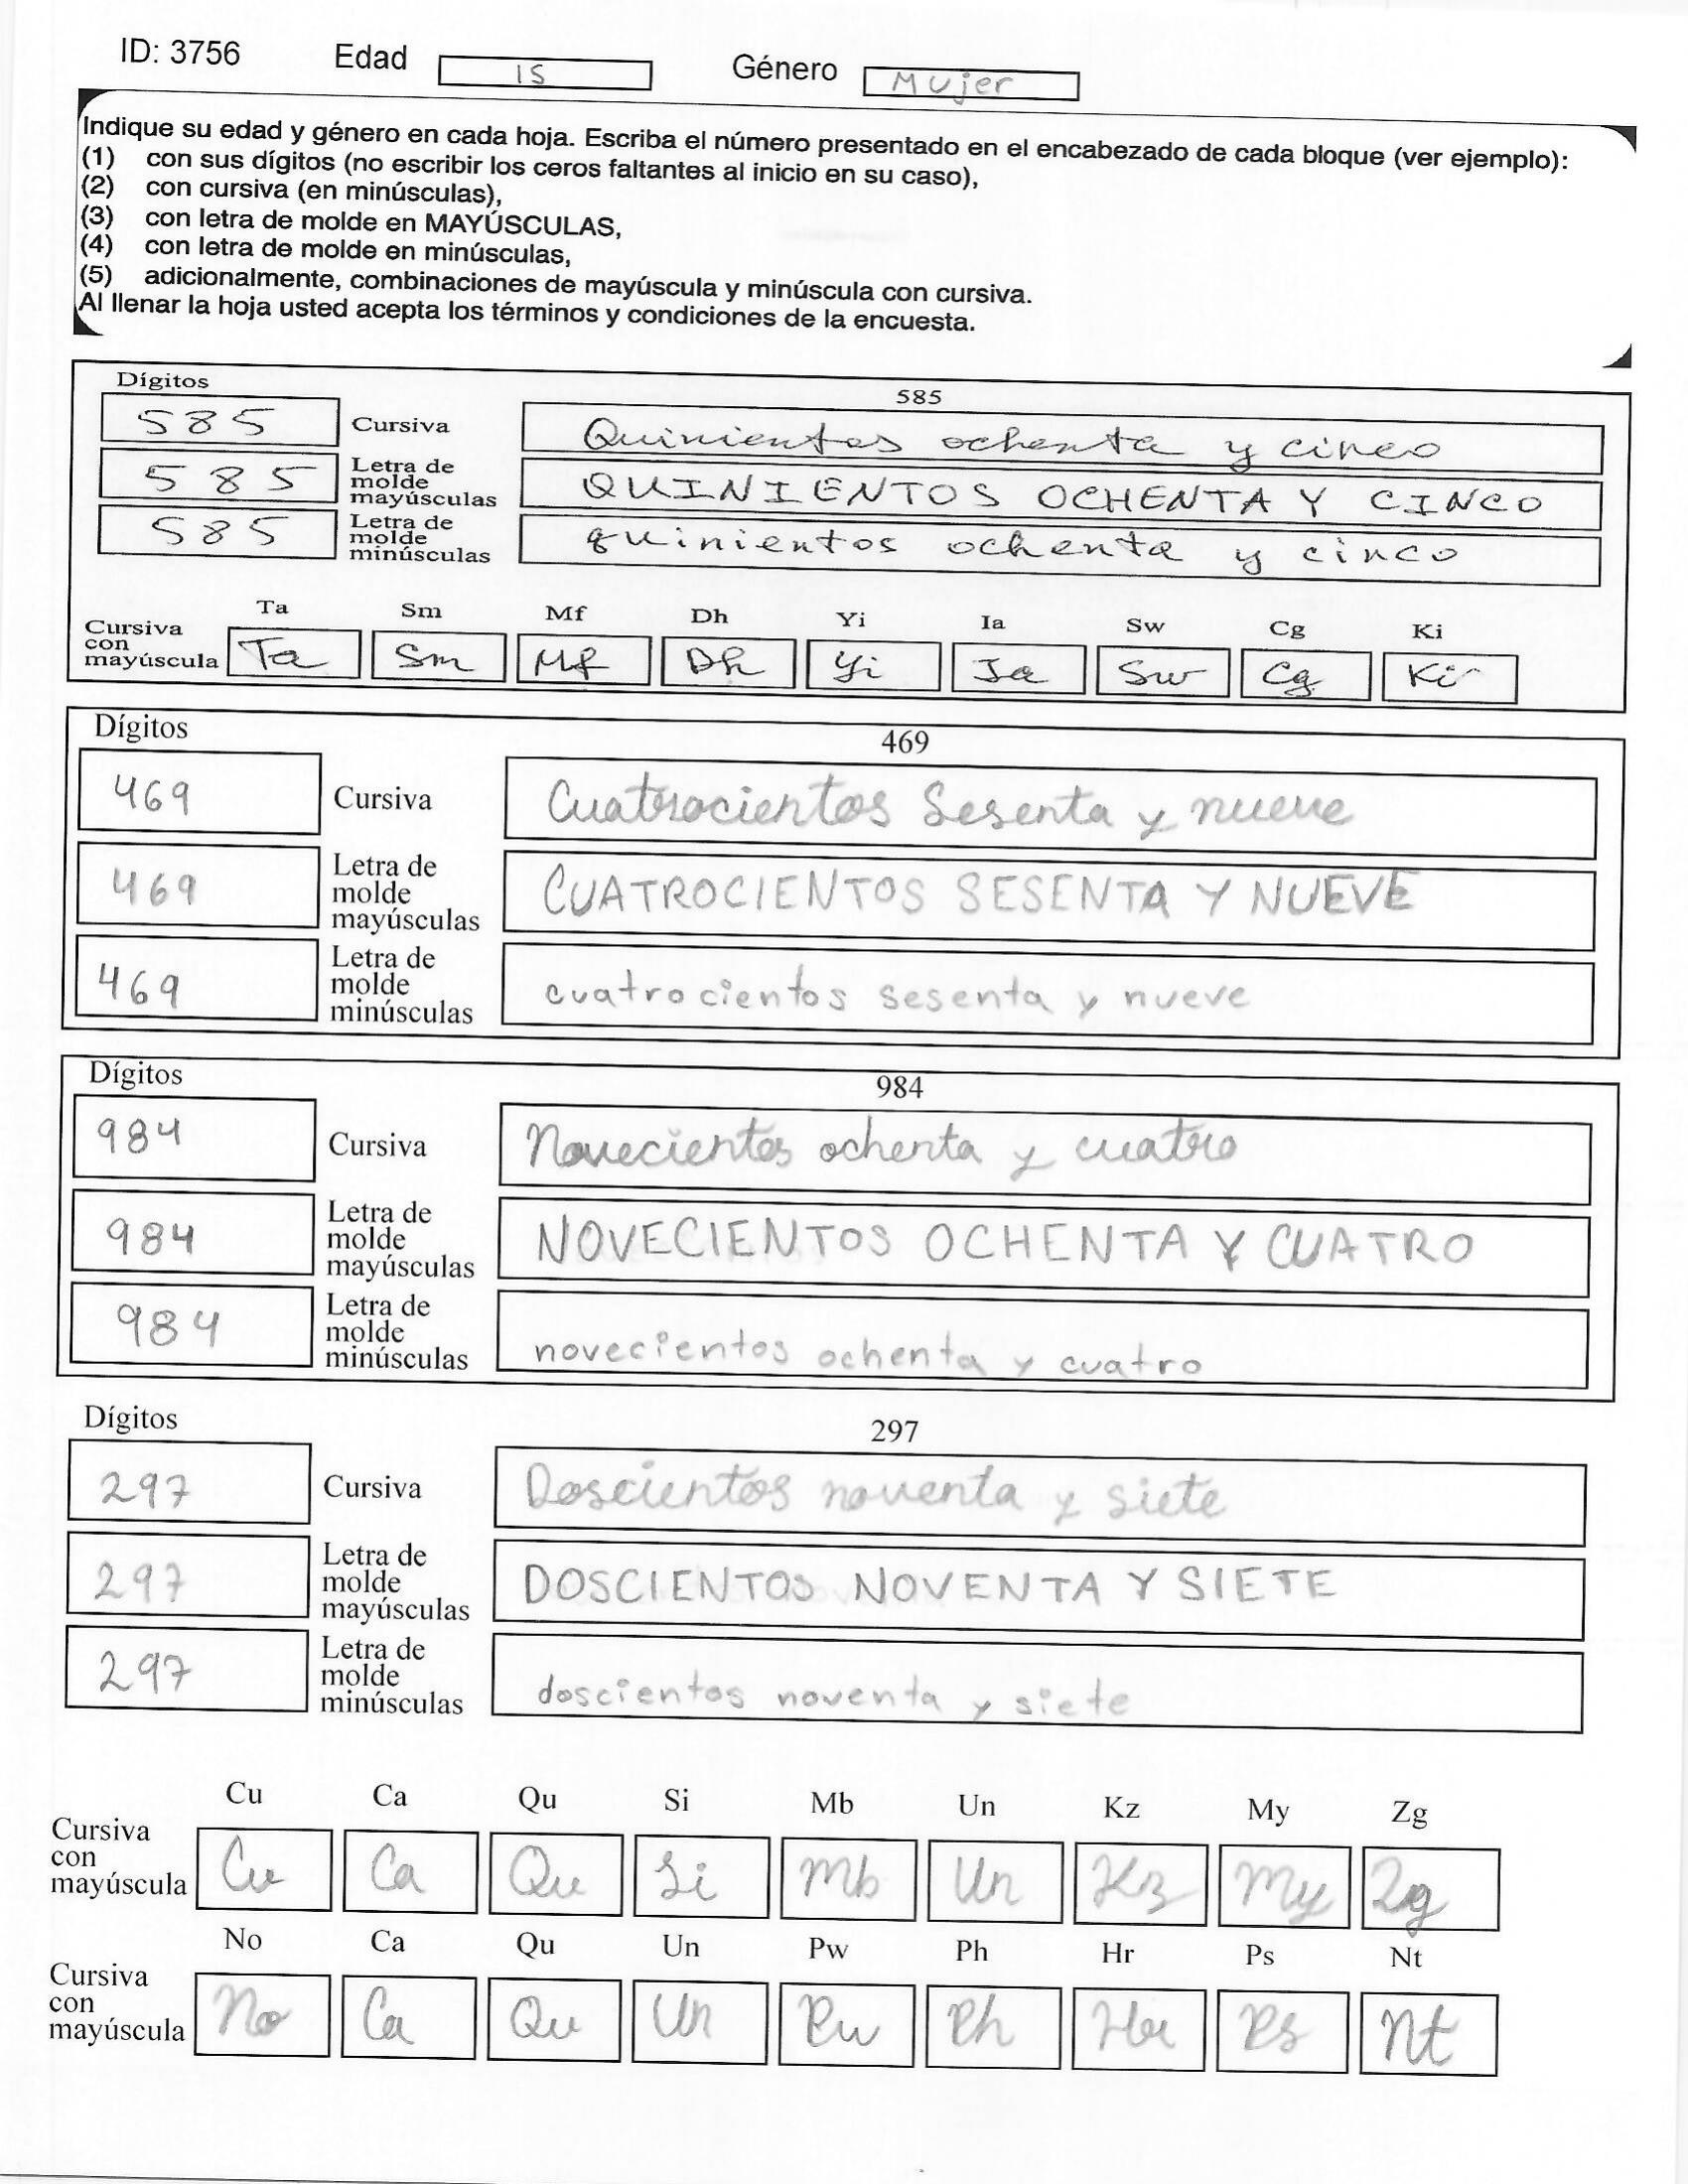 ID: 3756 Edad 15 Género Mujer
Indique su edad y género en cada hoja. Escriba el número presentado en el encabezado de cada bloque (ver ejemplo):
(1) con sus dígitos (no escribir los ceros faltantes al inicio en su caso),
(2) con cursiva (en minúsculas),
(3) con letra de molde en MAYÚSCULAS,
(4) con letra de molde en minúsculas,
(5) adicionalmente, combinaciones de mayúscula y minúscula con cursiva.
Al llenar la hoja usted acepta los términos y condiciones de la encuesta.
Dígitos 585
585 Cursiva Quinientos ochenta y cinco
585 Letra de molde mayúsculas QUINIENTOS OCHENTA Y CINCO
585 Letra de molde minúsculas quinientos ochenta y cinco
Ta Sm Mf Dh Yi Ia Sw Cg Ki
Cursiva con mayúscula Ta Sm Mf Dh Yi Ia Sw Cg Ki
Dígitos 469
469 Cursiva Cuatrocientos Sesenta y nueve
469 Letra de molde mayúsculas CUATROCIENTOS SESENTA Y NUEVE
469 Letra de molde minúsculas cuatrocientos sesenta y nueve
Dígitos 984
984 Cursiva Novecientos ochenta y cuatro
984 Letra de molde mayúsculas NOVECIENTOS OCHENTA Y CUATRO
984 Letra de molde minúsculas novecientos ochenta y cuatro
Dígitos 297
297 Cursiva Doscientos noventa y siete
297 Letra de molde mayúsculas DOSCIENTOS NOVENTA Y SIETE
297 Letra de molde minúsculas doscientos noventa y siete
Cu Ca Qu Si Mb Un Kz My Zg
Cursiva con mayúscula Cu Ca Qu Si Mb Un Kz My Zg
No Ca Qu Un Pw Ph Hr Ps Nt
Cursiva con mayúscula No Ca Qu Un Pw Ph Hr Ps Nt